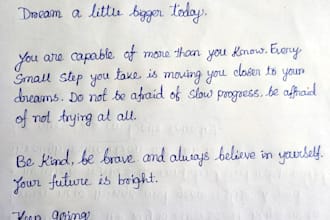 Dream a little bigger today.
You are capable of more than you know. Every
small step you take is moving you closer to your
dreams. Do not be afraid of slow progress, be afraid
of not trying at all.
Be kind, be brave and always believe in yourself.
Your future is bright.
Keep going